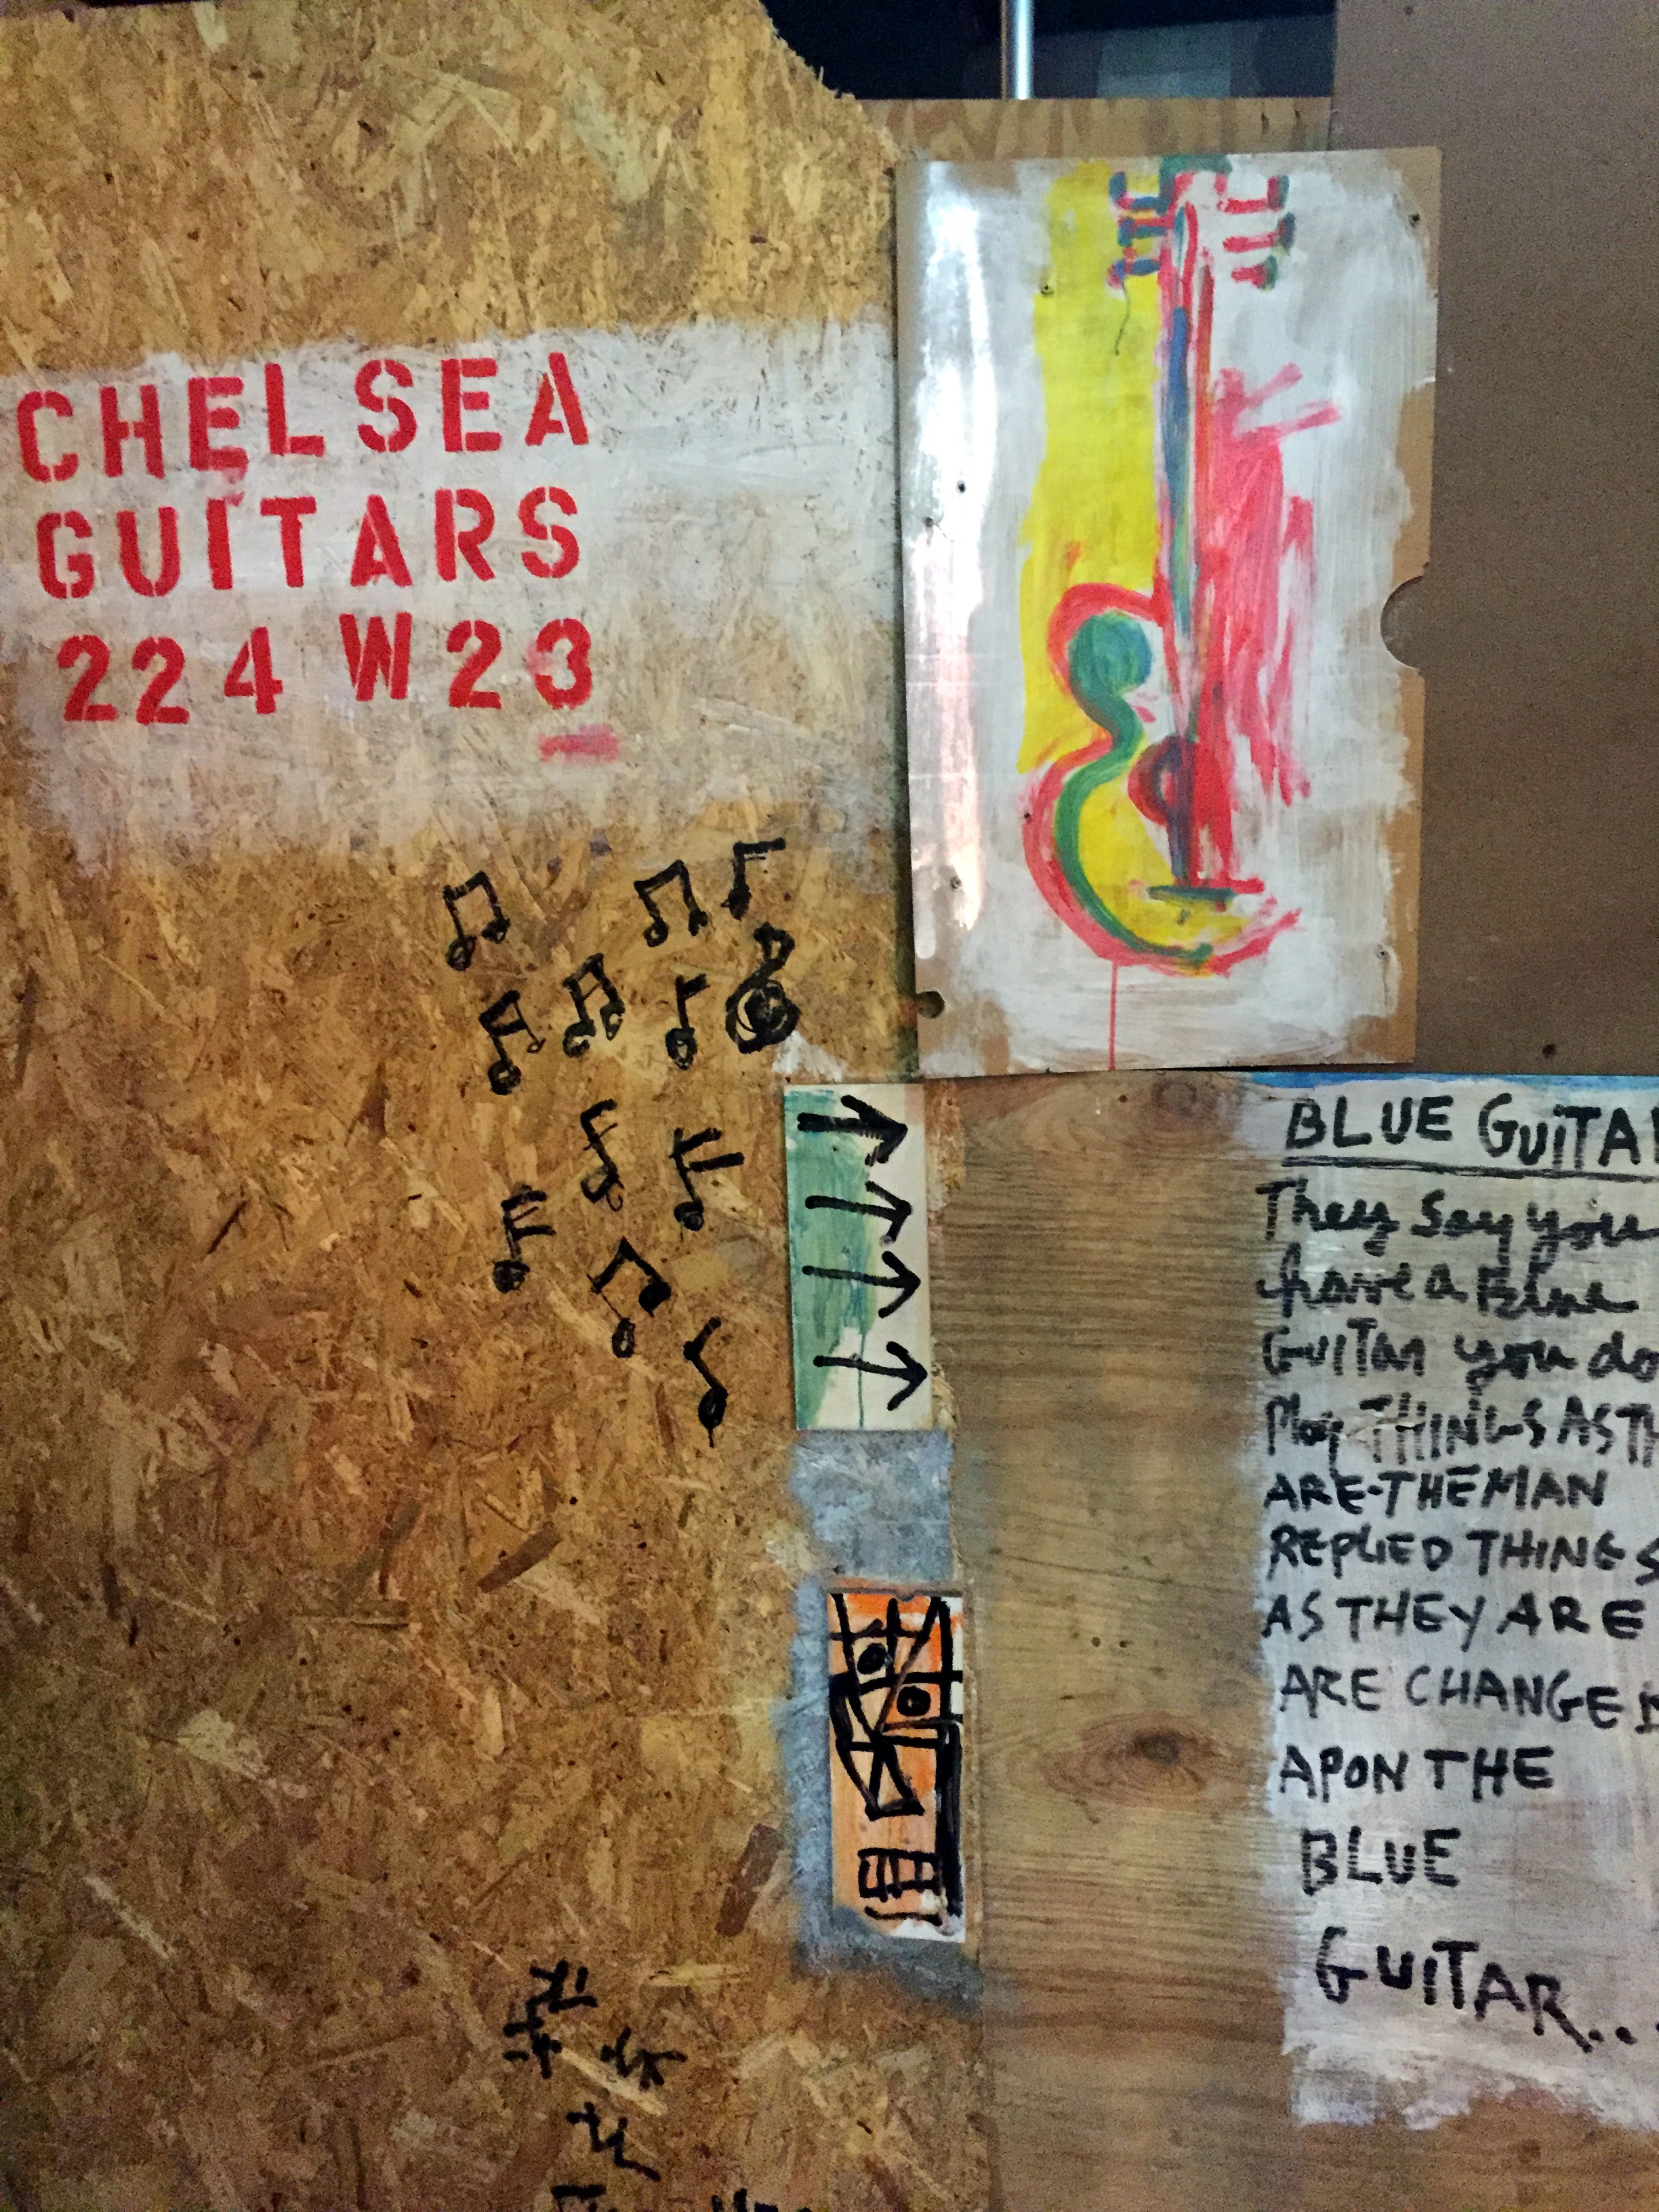 CHELSEA
GUITARS
224 W 23
BLUE GUITA
They Say you
have a Blue
GUITar you do
Play THINGS AS TH
ARE-THE MAN
REPLIED THINGS
AS THEY ARE
ARE CHANGED
APON THE
BLUE
GUITAR...